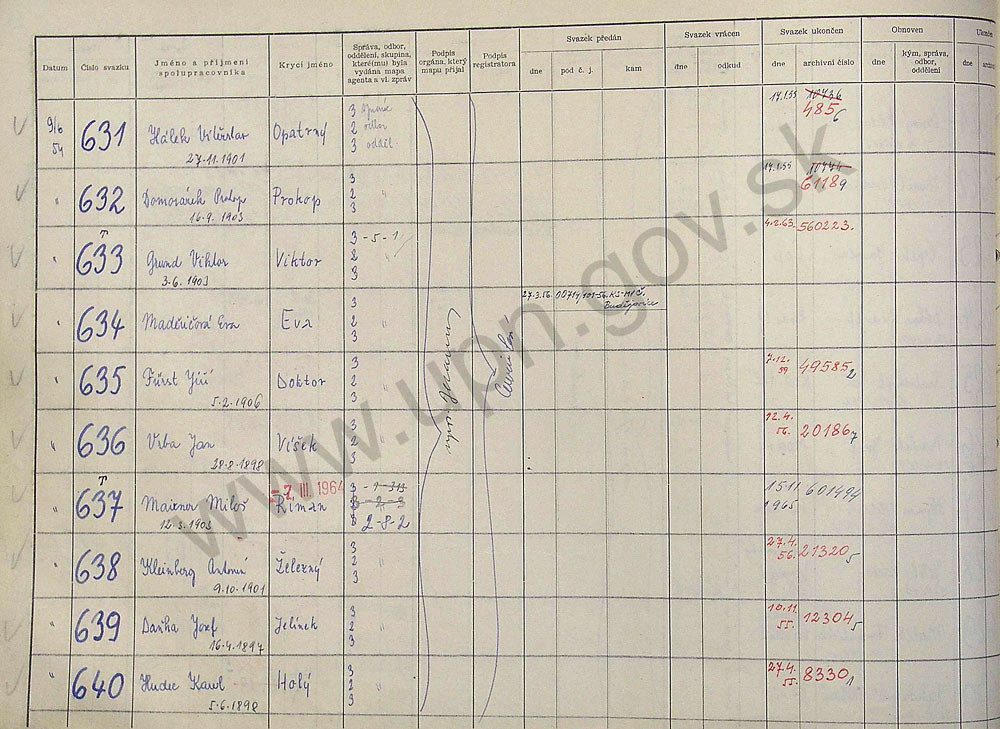 Datum
Číslo svazku
Jméno a příjmení spolupracovníka
Krycí jméno
Správa, odbor, oddělení, skupina, které(mu) byla vydána mapa agenta a vl. zpráv
Podpis orgána, který mapu přijal
Podpis registratora
Svazek předán
dne
pod č. j.
kam
Svazek vrácen
dne
odkud
Svazek ukončen
dne
archivní číslo
Obnoven
dne
kým, správa, odbor, oddělení
Ukonč
dne
archivn
9/6 54
631
Hálek Vítězslav
27.11.1901
Opatrný
3 správa
2 odbor
3 odděl.
17.1.55
10736
4856
632
Domorázek Prokop
16.9.1903
Prokop
3
2
3
17.1.55
61189
T
633
Grund Viktor
3.6.1903
Viktor
3-5-1
2
3
4.2.63.
560223.
634
Eva
3
2
3
27.3.56.
Budějovice
635
Fürst Jiří
5.2.1906
Doktor
3
2
3
7.12. 59
49585 2
636
Vrba Jan
28.8.1898
Víšek
3
2
3
12.4. 56.
20186 7
T
637
Miloš
12.3.1903
-2. III. 1964
Říman
2-8-2
15.11 1965
601494
638
Kleinberg Antonín
9.10.1901
Železný
3
2
3
27.4. 56.
21320 5
639
Daňha Josef
16.4.1897
Jelínek
3
2
3
10.11. 55.
12304 5
640
Hudec Karel
5.6.1898
Holý
3
2
3
27.4. 55.
8330 1
www.upn.gov.sk